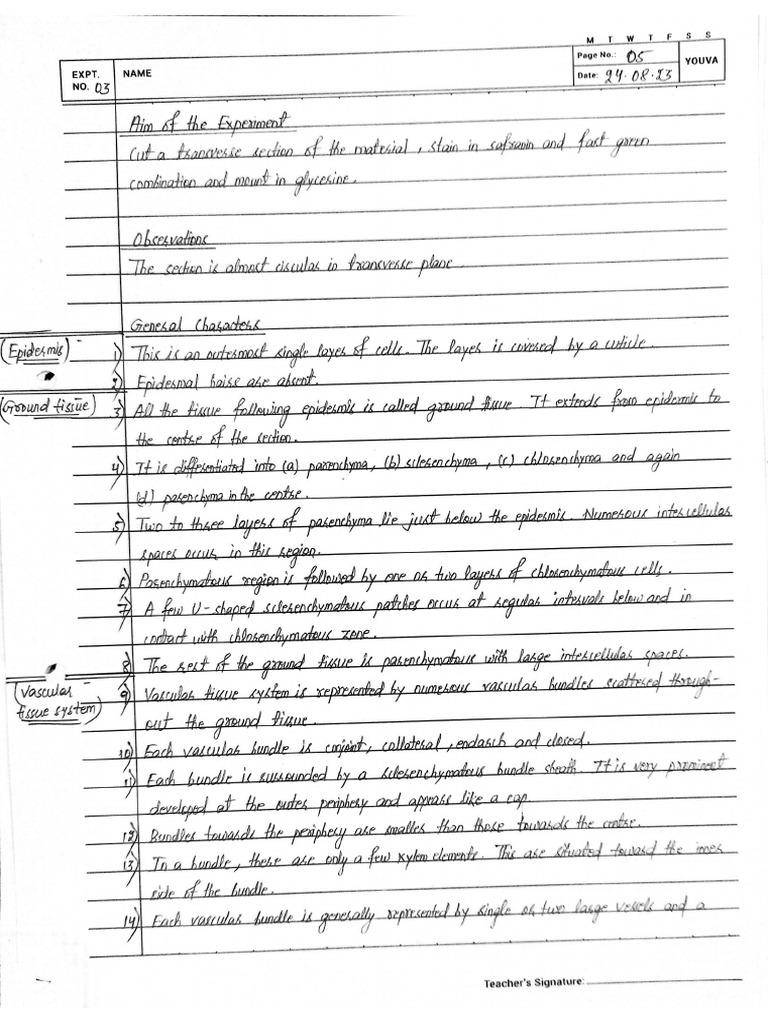 M T W T F S S
EXPT. NO. 03 NAME Page No.: 05 YOUVA
Date: 24.08.23
Aim of the Experiment
Cut a transverse section of the material, stain in safranin and fast green
combination and mount in glycerine.
Observations
The section is almost circular in transverse plane.
General Characters
(Epidermis) - 1) This is an outermost single layer of cells. The layer is covered by a cuticle.
2) Epidermal hairs are absent.
(Ground tissue) 3) All the tissue following epidermis is called ground tissue. It extends from epidermis to
the centre of the section.
4) It is differentiated into (a) parenchyma, (b) sclerenchyma, (c) chlorenchyma and again
(d) parenchyma in the centre.
5) Two to three layers of parenchyma lie just below the epidermis. Numerous intercellular
spaces occur in this region.
6) Parenchymatous region is followed by one or two layers of chlorenchymatous cells.
7) A few U-shaped sclerenchymatous patches occur at regular intervals below and in
contact with chlorenchymatous zone.
8) The rest of the ground tissue is parenchymatous with large intercellular spaces.
(Vascular - tissue system) 9) Vascular tissue system is represented by numerous vascular bundles scattered through-
out the ground tissue.
10) Each vascular bundle is conjoint, collateral, endarch and closed.
11) Each bundle is surrounded by a sclerenchymatous bundle sheath. It is very prominent
developed at the outer periphery and appears like a cap.
12) Bundles towards the periphery are smaller than those towards the centre.
13) In a bundle, there are only a few xylem elements. This are situated toward the inner
side of the bundle.
14) Each vascular bundle is generally represented by single or two large vessels and a
Teacher's Signature: